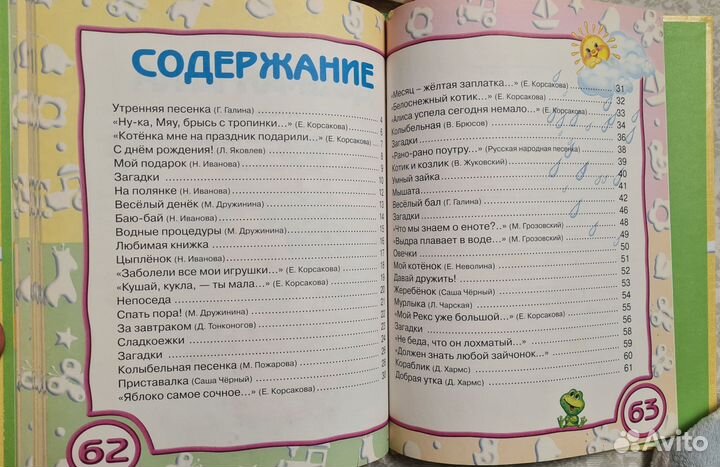 СОДЕРЖАНИЕ
Утренняя песенка (Г. Галина) 4
«Ну-ка, Мяу, брысь с тропинки...» (Е. Корсакова) 6
«Котёнка мне на праздник подарили...» (Е. Корсакова)
С днём рождения! (Л. Яковлев) 8
Мой подарок (Н. Иванова)
Загадки 10
На полянке (Н. Иванова) 12
Весёлый денёк (М. Дружинина) 13
Баю-бай (Н. Иванова) 14
Водные процедуры (М. Дружинина) 15
Любимая книжка 16
Цыплёнок (Н. Иванова)
«Заболели все мои игрушки...» (Е. Корсакова)
«Кушай, кукла, — ты мала...» (Е. Корсакова)
Непоседа
Спать пора! (М. Дружинина) 22
За завтраком (Д. Тонконогов)
Сладкоежки 24
Загадки
Колыбельная песенка (М. Пожарова) 28
Приставалка (Саша Чёрный)
«Яблоко самое сочное...» (Е. Корсакова) 30
62
«Месяц – жёлтая заплатка...» (Е. Корсакова) 31
«Белоснежный котик...» (Е. Корсакова) 32
«Алиса успела сегодня немало...» (Е. Корсакова) 33
Колыбельная (В. Брюсов) 34
Загадки 36
«Рано-рано поутру...» (Русская народная песенка) 38
Котик и козлик (В. Жуковский) 39
Умный зайка 40
Мышата 41
Весёлый бал (Г. Галина) 42
Загадки 46
«Что мы знаем о еноте?..» (М. Грозовский) 48
«Выдра плавает в воде...» (М. Грозовский) 49
Овечки 50
Мой котёнок (Е. Неволина) 51
Давай дружить! 52
Жеребёнок (Саша Чёрный) 53
Мурлыка (Л. Чарская) 54
«Мой Рекс уже большой...» (Е. Корсакова) 55
Загадки 56
«Не беда, что он лохматый...» 58
«Должен знать любой зайчонок...» 59
Кораблик (Д. Хармс) 60
Добрая утка (Д. Хармс) 61
63
Avito